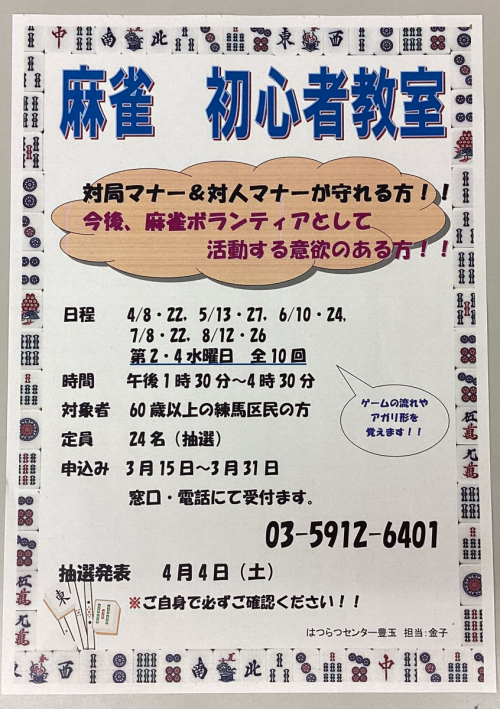 麻雀　初心者教室
対局マナー＆対人マナーが守れる方！！
今後、麻雀ボランティアとして
活動する意欲のある方！！
日程　4/8・22，5/13・27，6/10・24，
7/8・22，8/12・26
第2・4水曜日　全10回
時間　午後1時30分～4時30分
対象者　60歳以上の練馬区民の方
定員　24名（抽選）
申込み　3月15日～3月31日
窓口・電話にて受付ます。
ゲームの流れや
アガリ形を
覚えます！！
03-5912-6401
抽選発表　4月4日（土）
※ご自身で必ずご確認ください！！
はつらつセンター豊玉　担当：金子